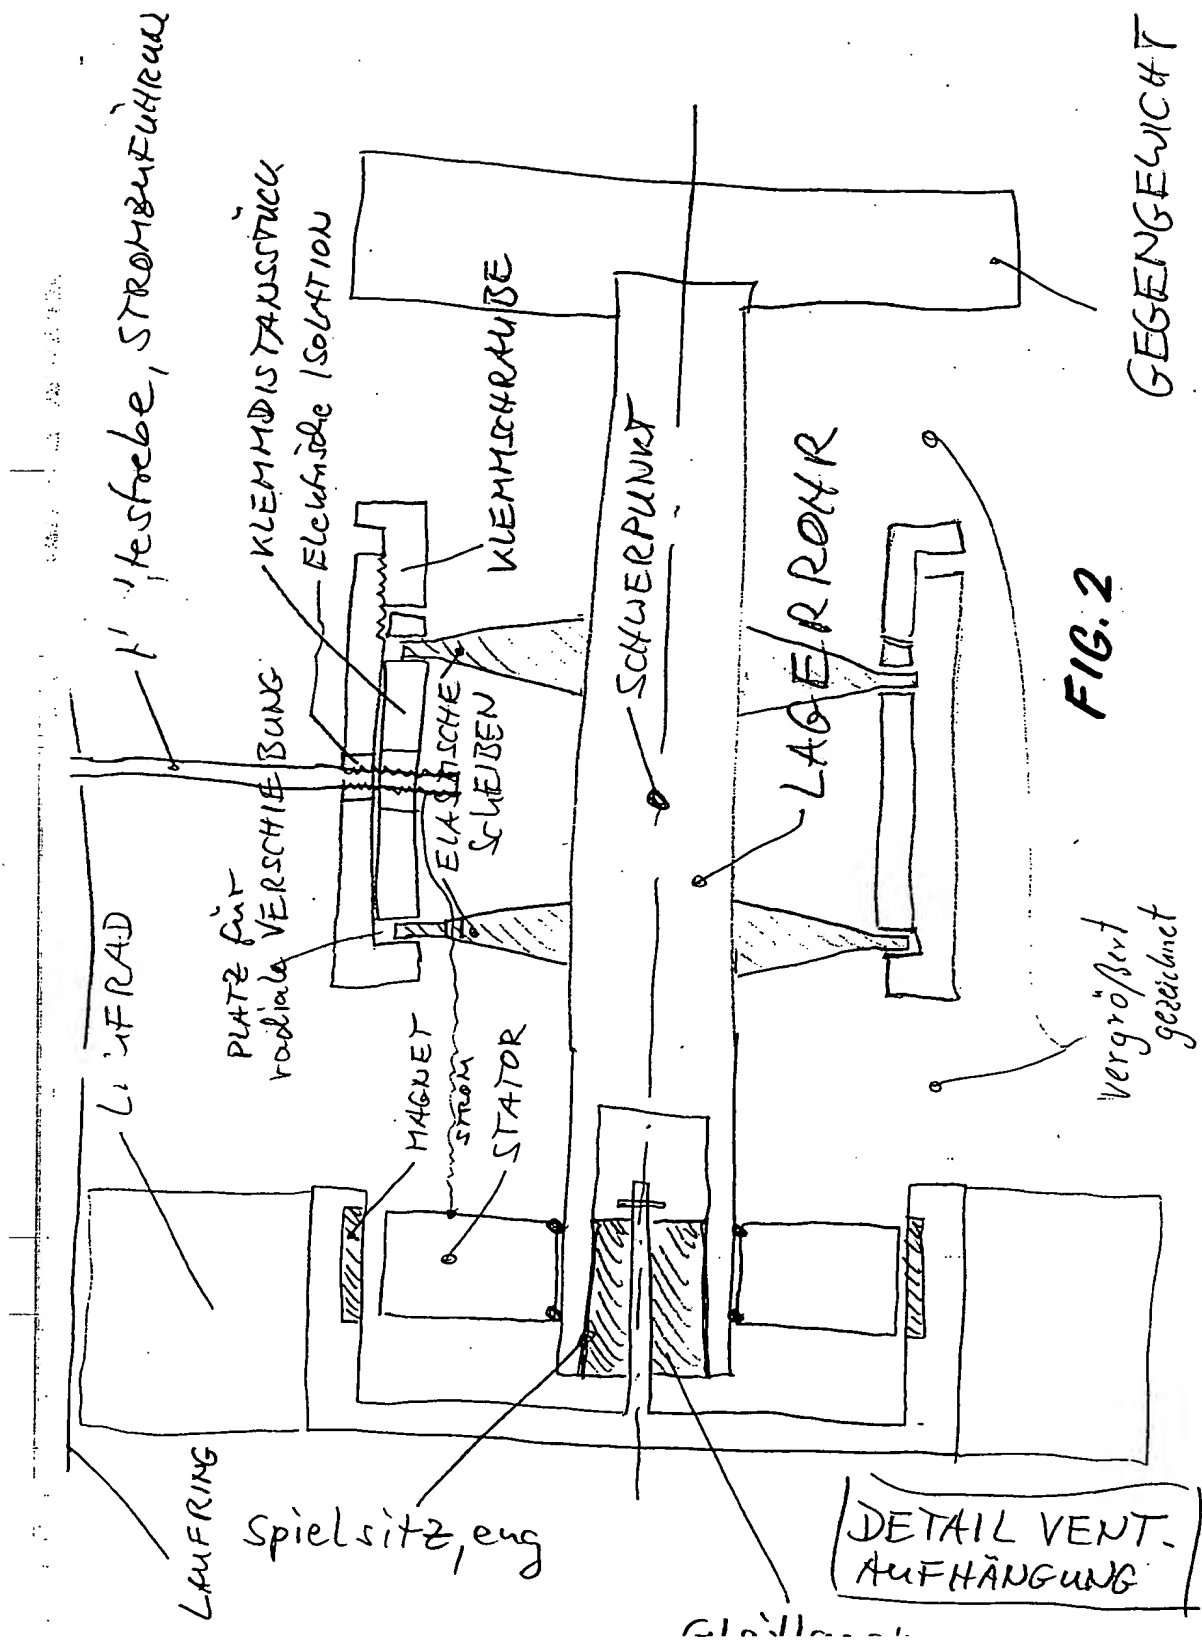 testrebe, STROMZUFÜHRUNG
KLEMMDISTANSSTÜCK
Elektrische ISOLATION
KLEMMSCHRAUBE
GEGENGEWICHT
PLATZ für
radiale VERSCHIEBUNG
ELASTISCHE
SCHEIBEN
SCHWERPUNKT
LAGERROHR
FIG. 2
MAGNET
STROM
STATOR
vergrößert
gezeichnet
LAUFRING
Spielsitz, eng
DETAIL VENT.
AUFHÄNGUNG